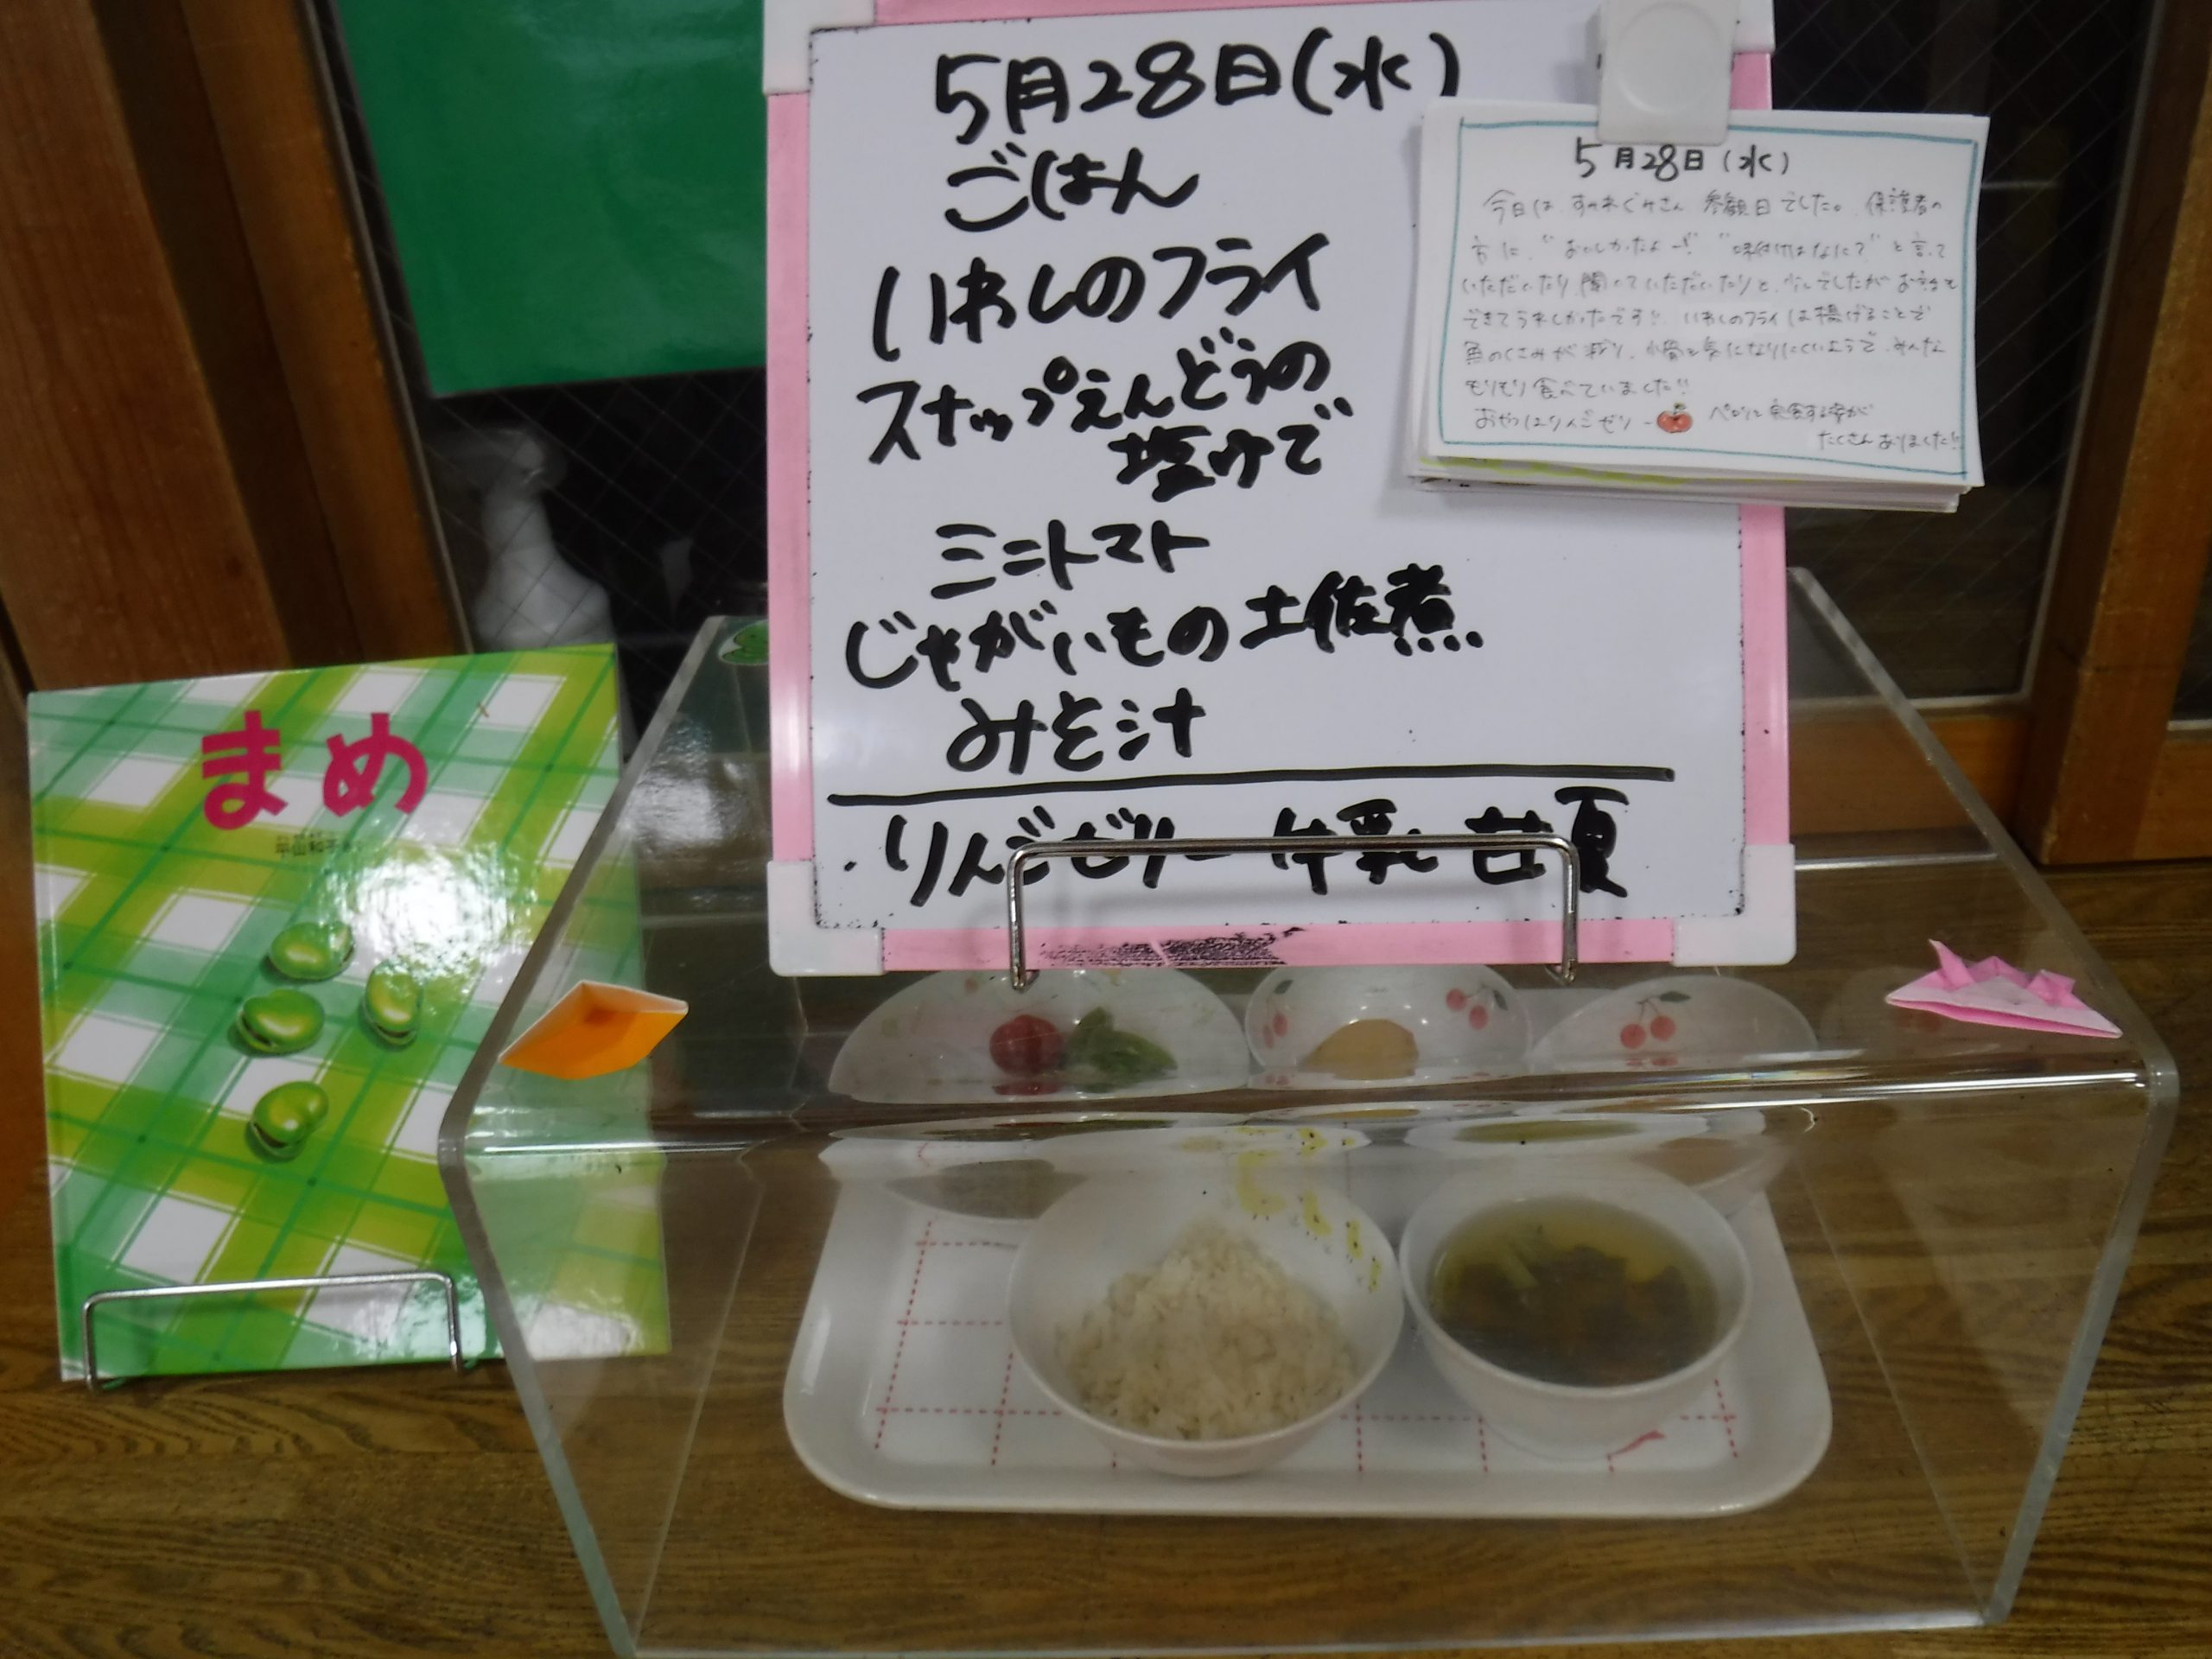 5月28日(水)
ごはん
いわしのフライ
スナップえんどうの
塩ゆで
ミニトマト
じゃがいもの土佐煮
みそ汁
りんごゼリー 牛乳 甘夏
5月28日(水)
今日は すみれぐみさん 参観日でした。保護者の
方に、"おいしかったよー!" "味付けはなに?"と言って
いただいたり 聞いていただいたりと、少しでしたがお話を
できてうれしかったです!! いわしのフライは揚げることで
魚のくさみが減り、小骨も気になりにくいようで、みんな
もりもり食べていました!!
おやつはりんごゼリー ペロリと完食する姿が
たくさんありました!!
まめ
平山和子